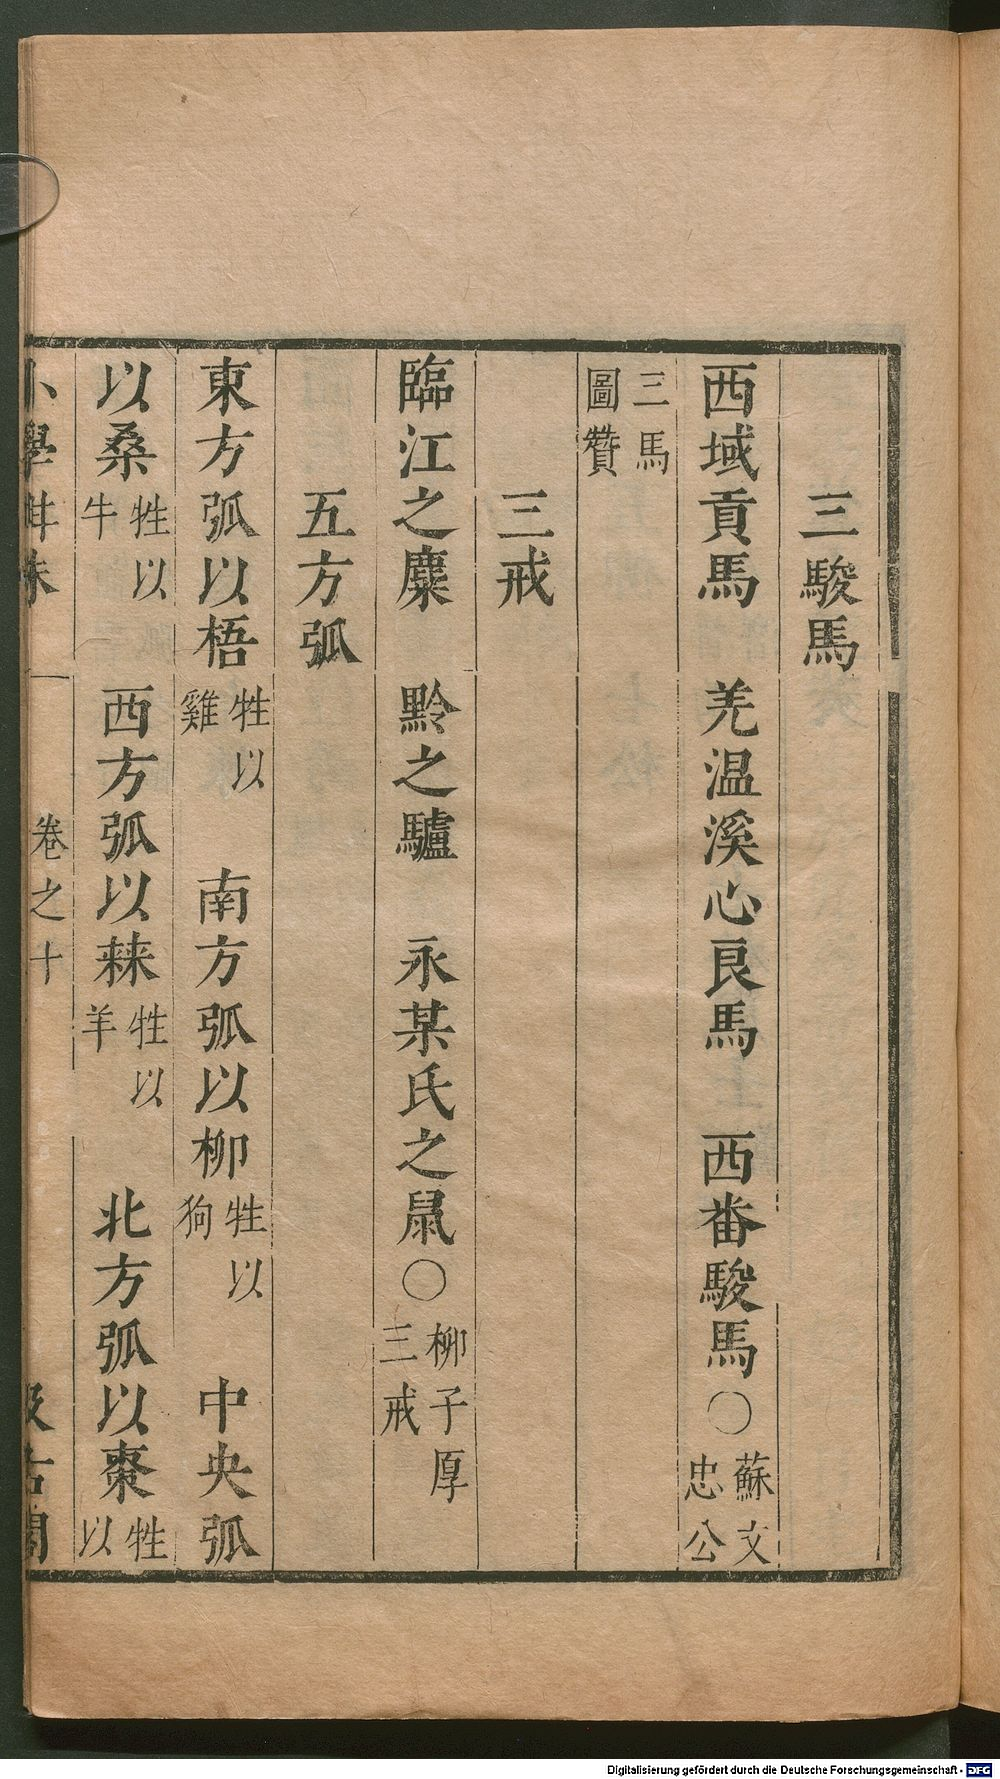 三駿馬
西域貢馬　羌温溪心良馬　西番駿馬〇蘇文忠公
三馬圖贊
三戒
臨江之麋　黔之驢　永某氏之鼠〇柳子厚三戒
五方弧
東方弧以梧牲以雞　南方弧以柳牲以狗　中央弧
以桑牲以牛　西方弧以棘牲以羊　北方弧以棗牲以
小學紺珠　卷之十　汲古閣
Digitalisierung gefördert durch die Deutsche Forschungsgemeinschaft - DFG